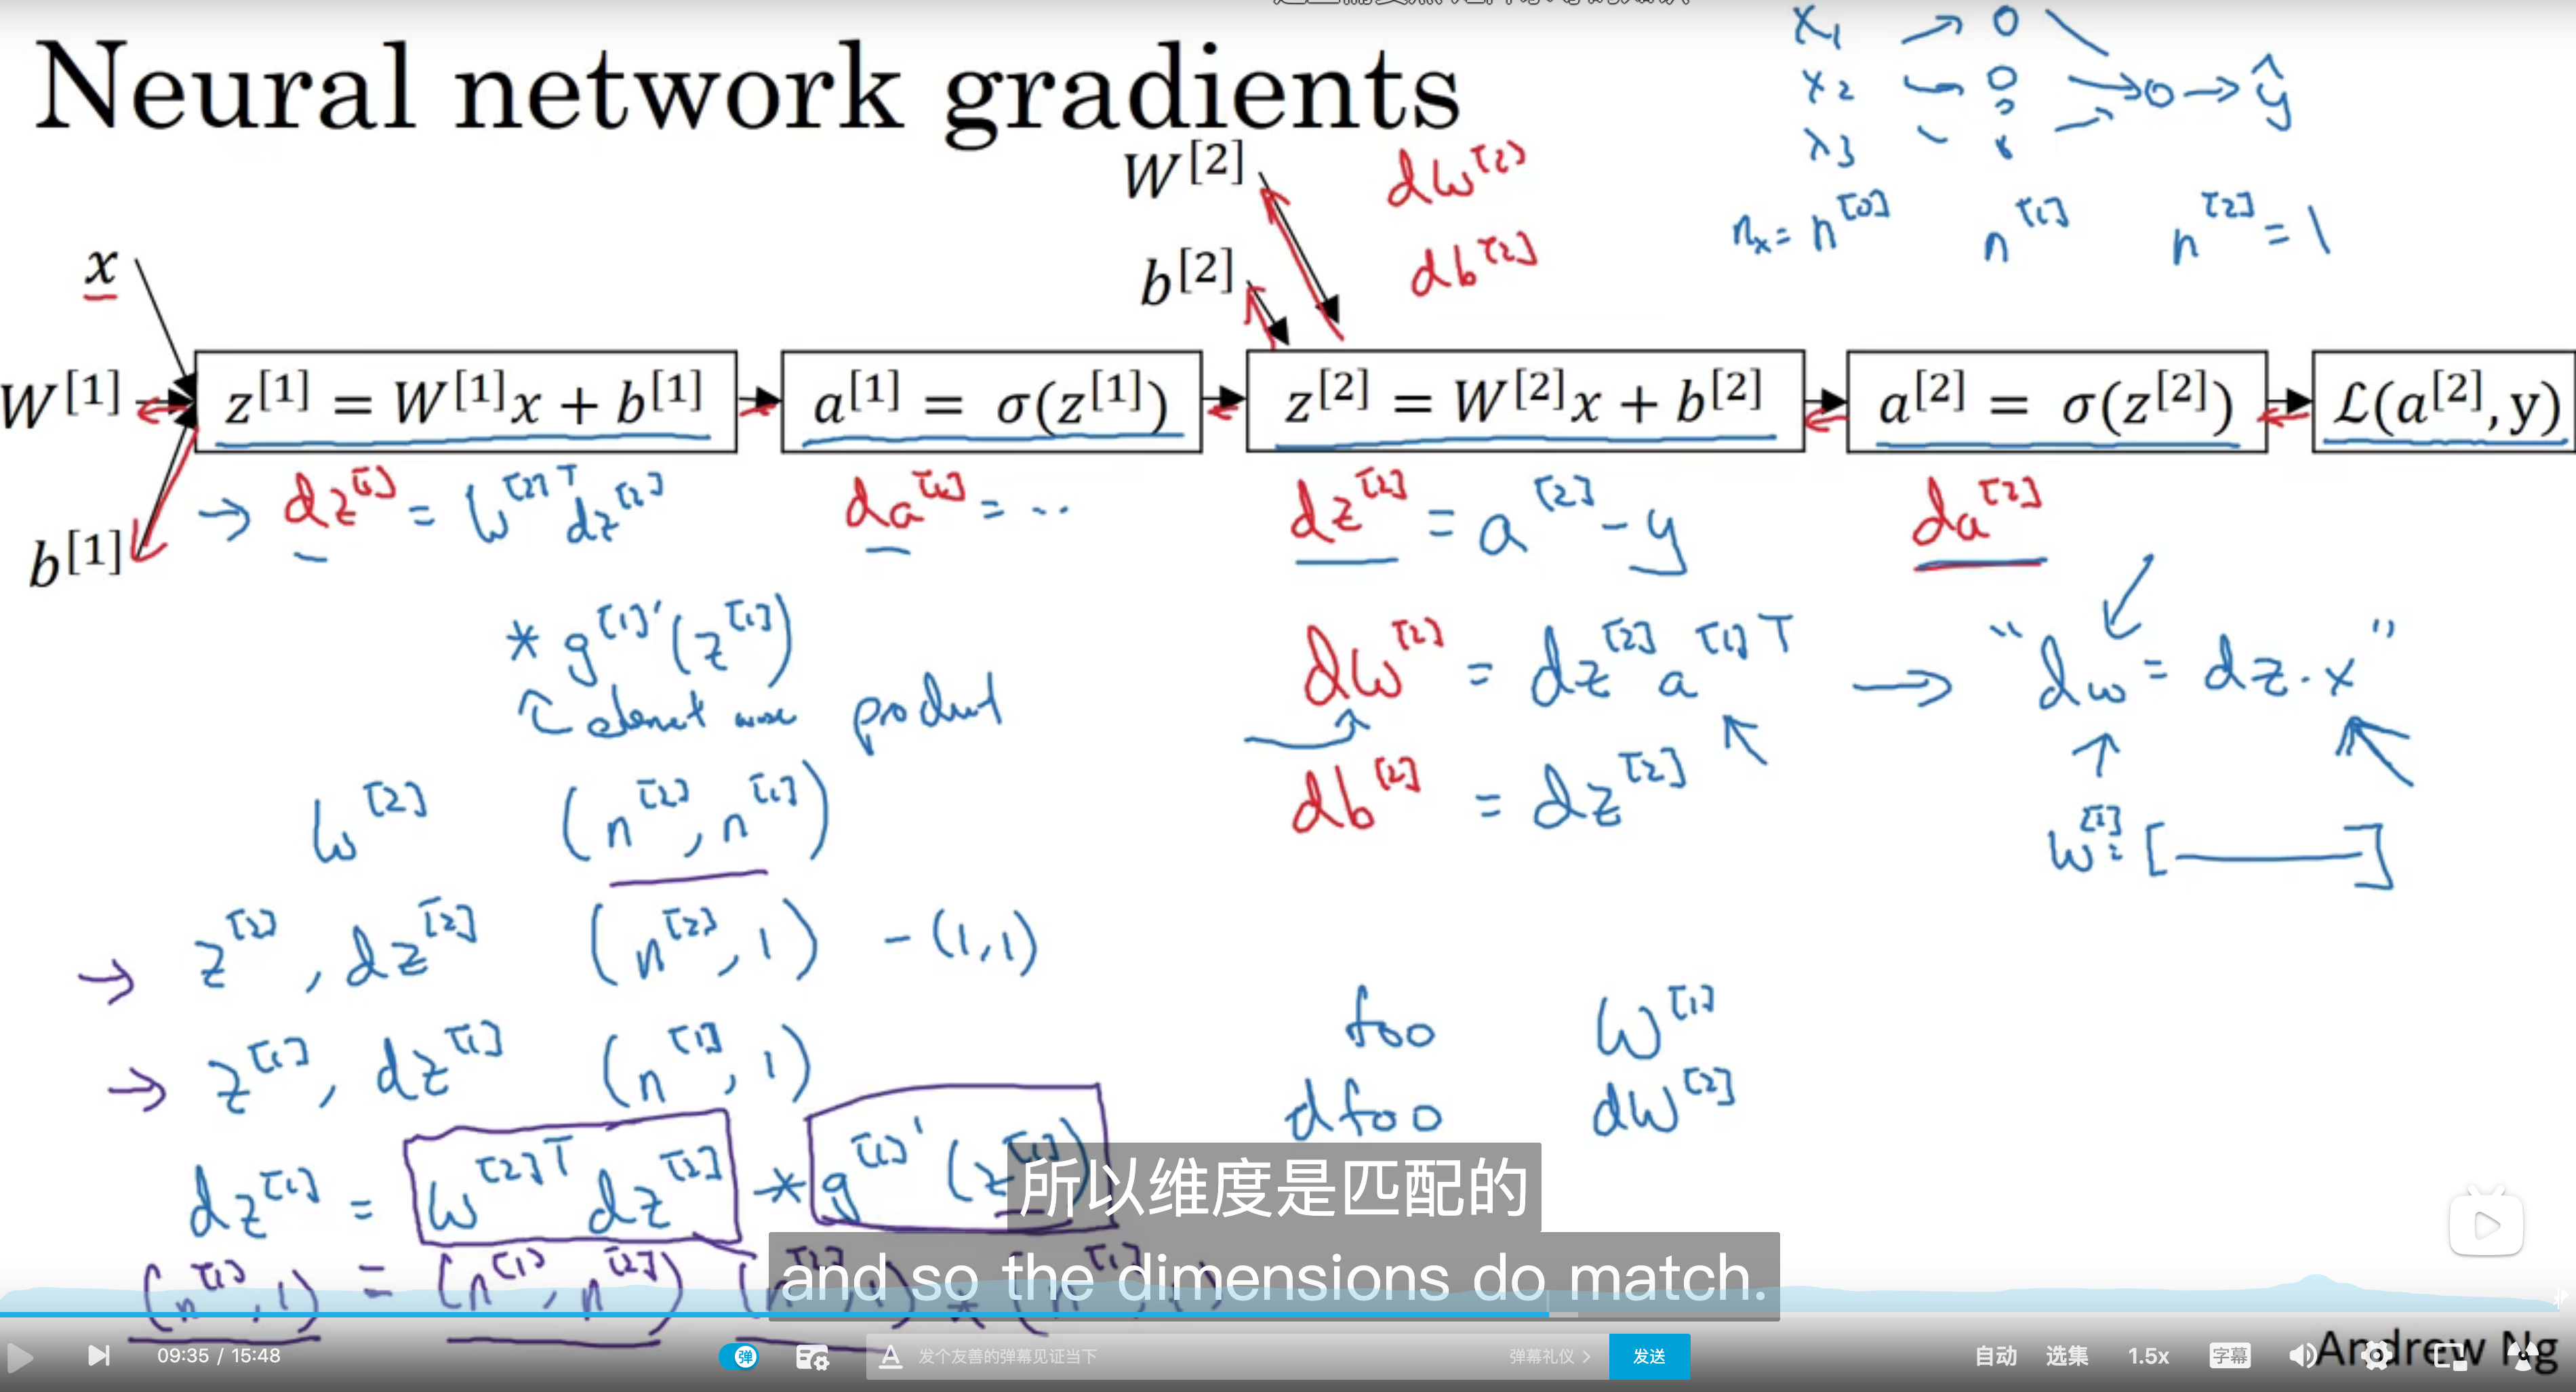 Neural network gradients
x₁
x₂
x₃
ŷ
nₓ = n^[0] n^[1] n^[2] = 1
W^[2] dW^[2]
b^[2] db^[2]
x
W^[1]
b^[1]
z^[1] = W^[1]x + b^[1]
a^[1] = σ(z^[1])
z^[2] = W^[2]x + b^[2]
a^[2] = σ(z^[2])
ℒ(a^[2], y)
→ dz^[1] = W^[2]T dz^[2]
da^[1] = ...
dz^[2] = a^[2] - y
da^[2]
* g^[1]'(z^[1])
↑ element wise product
dW^[2] = dz^[2] a^[1]T → "dw = dz · x"
db^[2] = dz^[2]
W^[2] (n^[2], n^[1])
→ z^[2], dz^[2] (n^[2], 1) - (1,1)
→ z^[1], dz^[1] (n^[1], 1)
foo W^[1]
dfoo dW^[2]
dz^[1] = W^[2]T dz^[2] * g^[1]'(z^[1])
(n^[1], 1) = (n^[1], n^[2])
所以维度是匹配的
and so the dimensions do match.
09:35 / 15:48
弹
A 发个友善的弹幕见证当下
弹幕礼仪 >
发送
自动 选集 1.5x 字幕
Andrew Ng